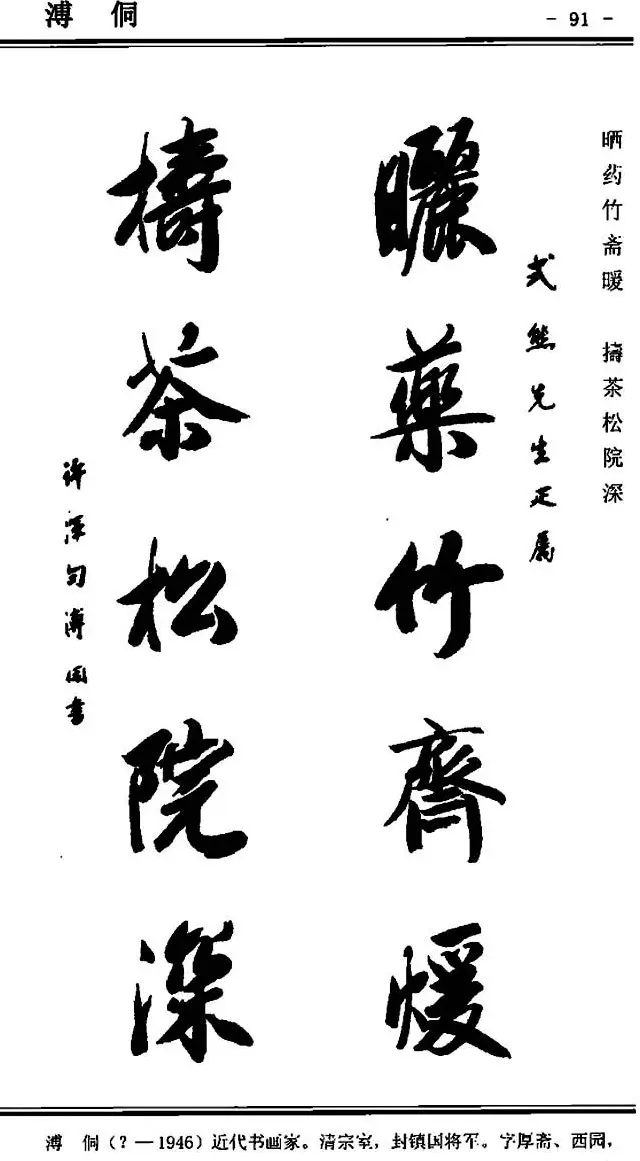 溥 侗
- 91 -
晒药竹斋暖 擣茶松院深
式熊先生正属
曬藥竹齋煖
擣茶松院深
許渾句溥侗書
溥 侗（？—1946）近代书画家。清宗室，封镇国将军。字厚斋、西园，